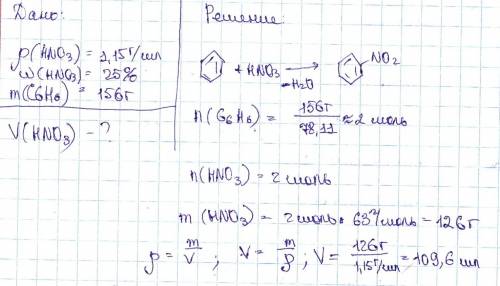 Дано:
ρ(HNO3) = 1,15 г/мл
ω(HNO3) = 25%
m(C6H6) = 156г
V(HNO3) - ?
Решение:
+ HNO3 → NO2
-H2O
n(C6H6) = 156г / 78,11 ≈ 2 моль
n(HNO3) = 2 моль
m (HNO3) = 2 моль • 63 г/моль = 126г
ρ = m/V ; V = m/ρ ; V = 126г / 1,15 г/мл = 109,6 мл